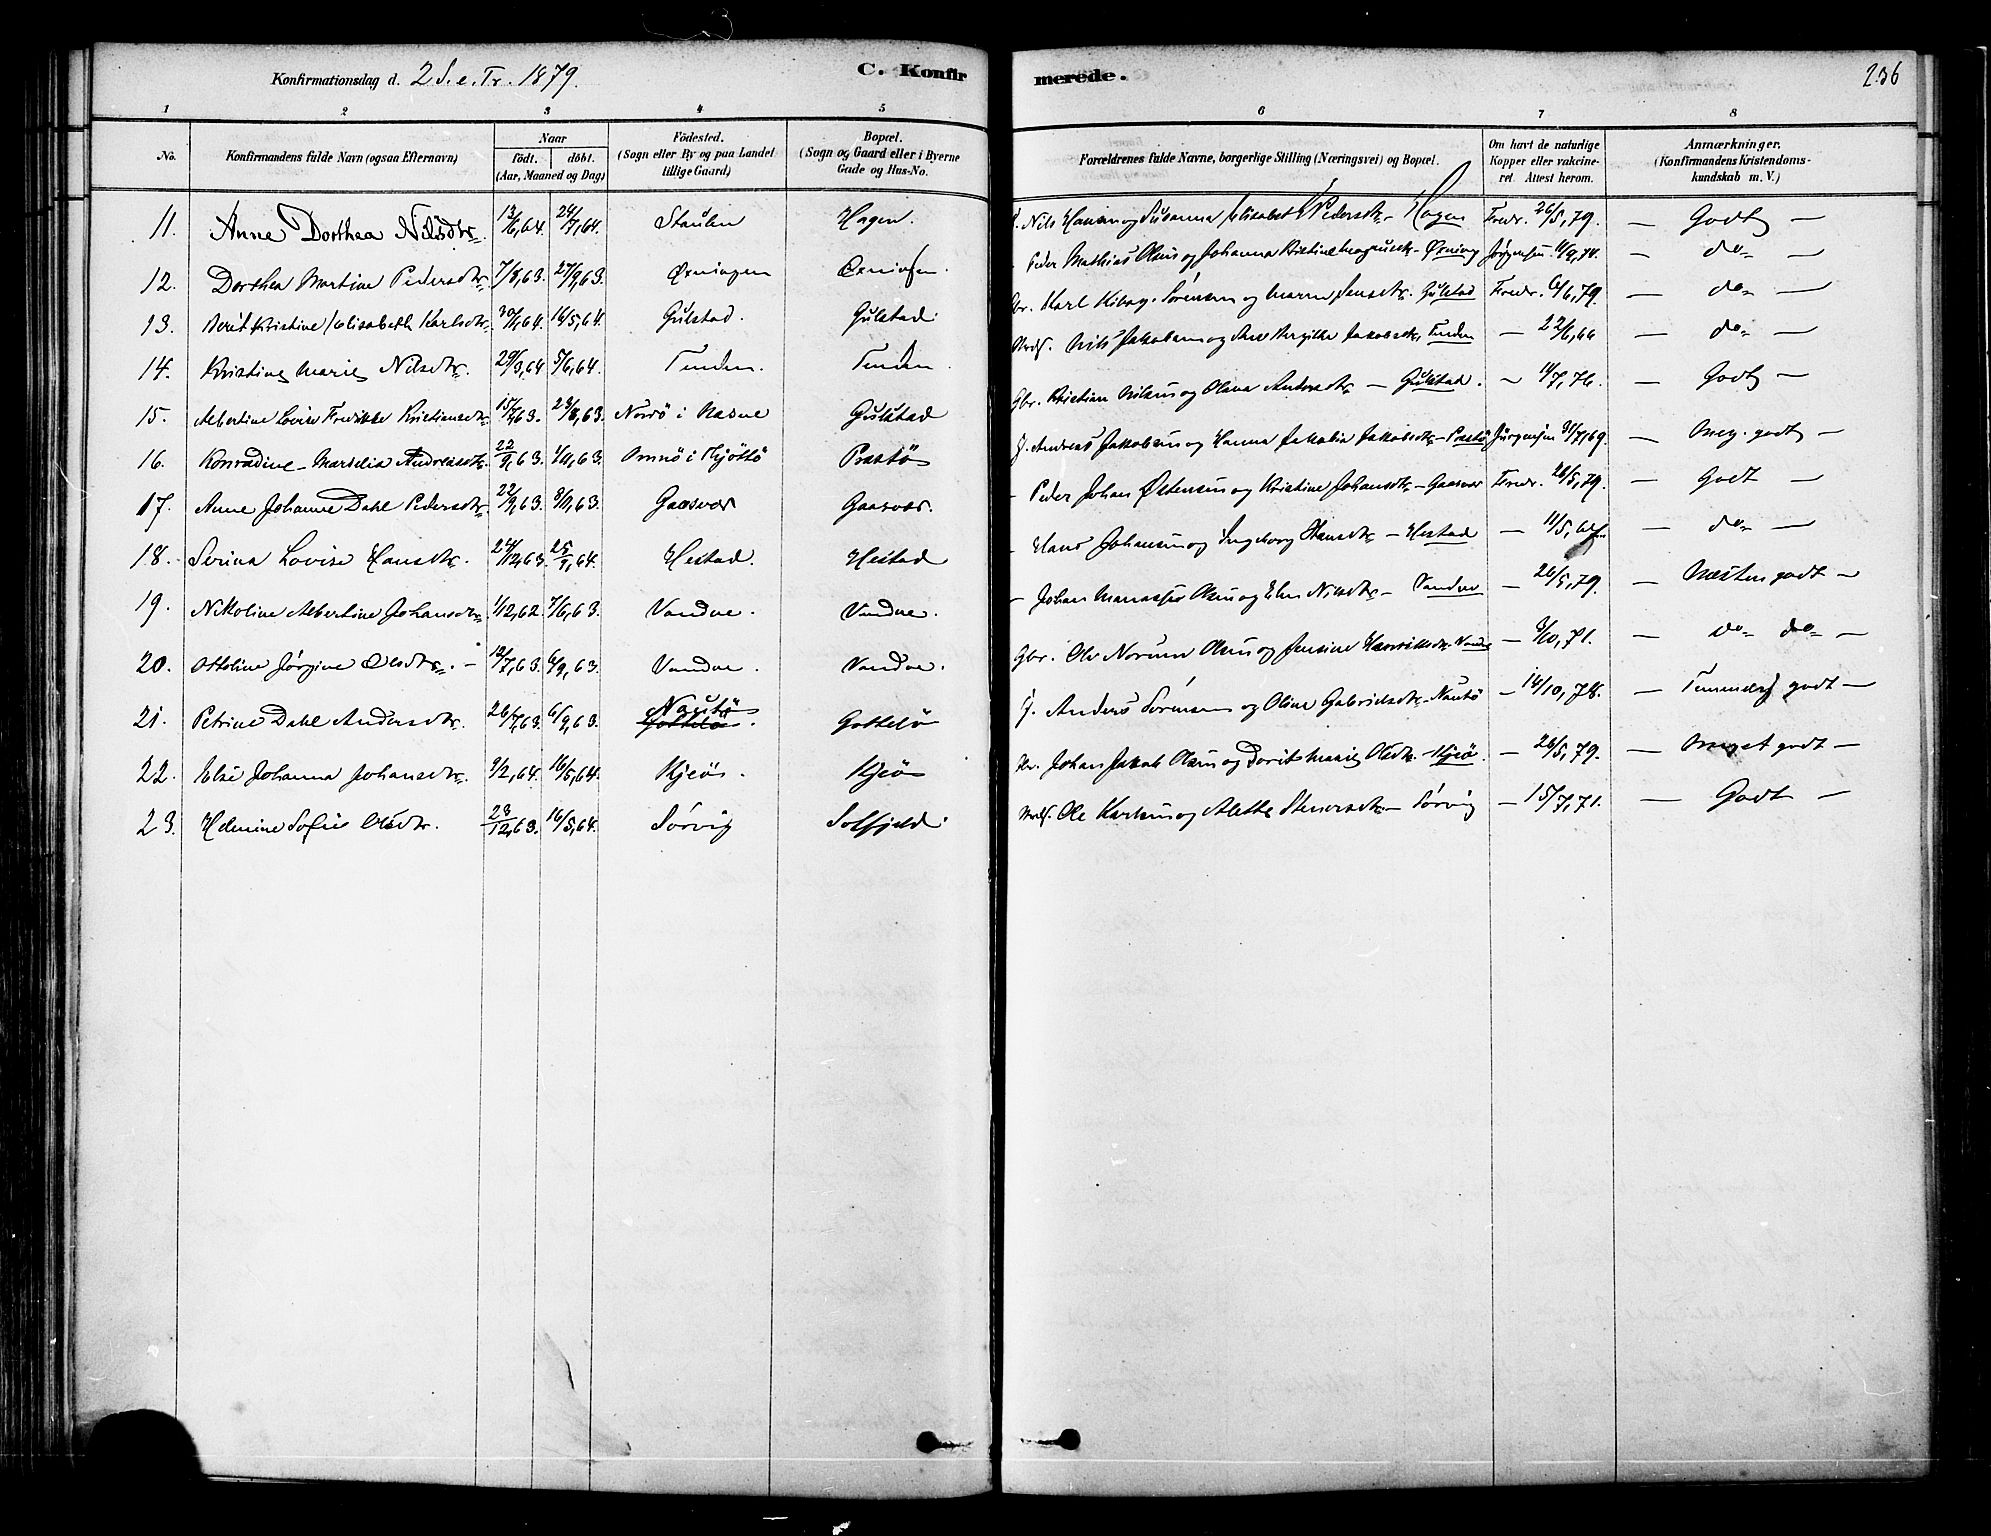 Konfirmationsdag d. 2 S. e. Tr. 1879.
C. Konfirmerede.
236
1 2 3 4 5 6 7 8
No.
Konfirmandens fulde Navn (ogsaa Efternavn)
Naar
født. døbt.
(Aar, Maaned og Dag)
Fødested.
(Sogn eller By og paa Landet
tillige Gaard)
Bopæl.
(Sogn og Gaard eller i Byerne
Gade og Hus-No.
Forældrenes fulde Navne, borgerlige Stilling (Næringsvei) og Bopæl.
Om havt de naturlige
Kopper eller vakcine-
ret. Attest herom.
Anmærkninger.
(Konfirmandens Kristendoms-
kundskab m. V.)
11. Anne Dorthea Nilsdtr. 13/6,64. 24/7,64. Staulen Hagen. Nils Hansen og Susanna Elisabet Pedersdtr. – Hagen Fredr. 26/5,79. — Godt —
12. Dorthea Martine Pedersdtr. 7/8,63. 27/9,63. Øxningen Øxningen. Peder Mathias Olsen og Johanna Kristine Magnusdtr. Øxning Jørgensen — do —
13. Berit Kristine Elisabeth Karlsdtr. 16/5,64. Gulstad. Gulstad Gbr. Karl Sørensen og Maren Jensdtr. Gulstad Fredr. 6/6,79. — do —
14. Kristine Marie Nilsdtr. 29/3,64 5/6,64. Tenden. Tenden. Nils Jakobsen og Jakobsdtr. Tenden — 22/6,66 — do —
15. Albertine Lovise Fredrikke Kristiansdtr. 15/7,63. 23/8,63. Norrø i Næsne Gulstad Gbr. Kristian Nilsen og Olava Andersdtr. — Gulstad. — Godt —
16. Konradine Marselia Andreasdtr. 22/9,63. 1/11,63. Omnø i Tjøttø Prestø J. Andreas Jakobsen og Hanna Jakobia Jakobsdtr. – Prestø Jørgensen 31/7,69. — Meg. godt —
17. Anne Johanne Dahl Pedersdtr. 22/9,63. 8/11,63. Gaasvær Gaasvær. Peder Johan Østensen og Kristine Johansdtr. – Gaasvær Fredr. 26/5,79. — Godt —
18. Serina Lovise Hansdtr. 24/12,63. Hestad. Hestad Hans Johansen og Ingeborg Hansdtr. – Hestad — do —
19. Nikoline Albertine Johansdtr. 1/12,62. 7/6,63. Vandve. Vandve. Johan Manasse Olsen og Elen Nilsdtr. – Vandve — 26/5,79. — Næsten godt —
20. Ottoline Jørgine Olsdtr. 12/7,63. 6/9,63. Vandve. Vandve. Gbr. Ole Norum Olsen og Jensine Henriksdtr. Vandve — 3/10,71. — do do —
21. Petrine Dahl Andersdtr. 26/7,63. 6/9,63. Nautø Gottelø. Gottelø J. Anders Sørensen og Oline Gabrielsdtr. – Nautø — 14/10,78. — Temmelig godt —
22. Else Johanna Johansdtr. 9/2,64. 16/5,64. Kjeø. Kjeø Johan Jakob Olsen og Dorit Marie Olsdtr. – Kjeø. — 26/5,79. — Meget godt —
23. Helmine Sofie Olsdtr. 23/12,63. 16/5,64. Sørvig Solfjeld. Ole Karlsen og Alette Stenersdtr. – Sørvig — 15/7,71. — Godt —